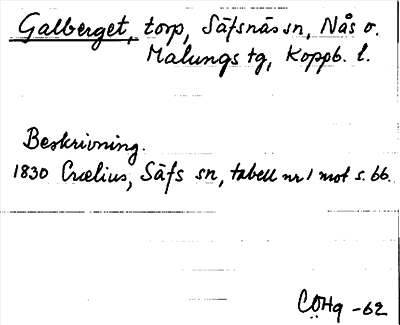 Galberget, torp, Säfsnäs sn, Nås o.
Malungs tg, Koppb. l.
Beskrivning.
1830 Crælius, Säfs sn, tabell nr 1 mot s. 66.
CÖHg -62